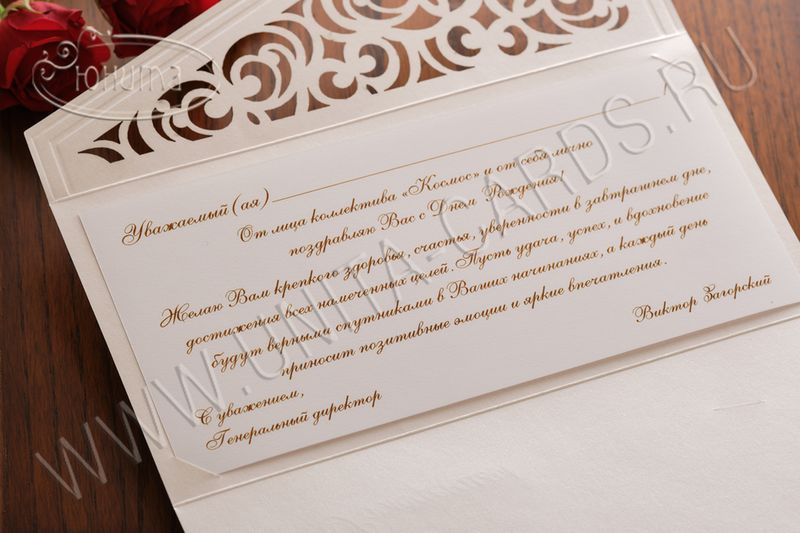 Юнита
Уважаемый (ая) !
От лица коллектива «Космос» и от себя лично
поздравляю Вас с Днем Рождения!
Желаю Вам крепкого здоровья, счастья, уверенности в завтрашнем дне,
достижения всех намеченных целей. Пусть удача, успех, и вдохновение
будут верными спутниками в Ваших начинаниях, а каждый день
приносит позитивные эмоции и яркие впечатления.
С уважением,
Генеральный директор
Виктор Загорский
WWW.UNITA-CARDS.RU